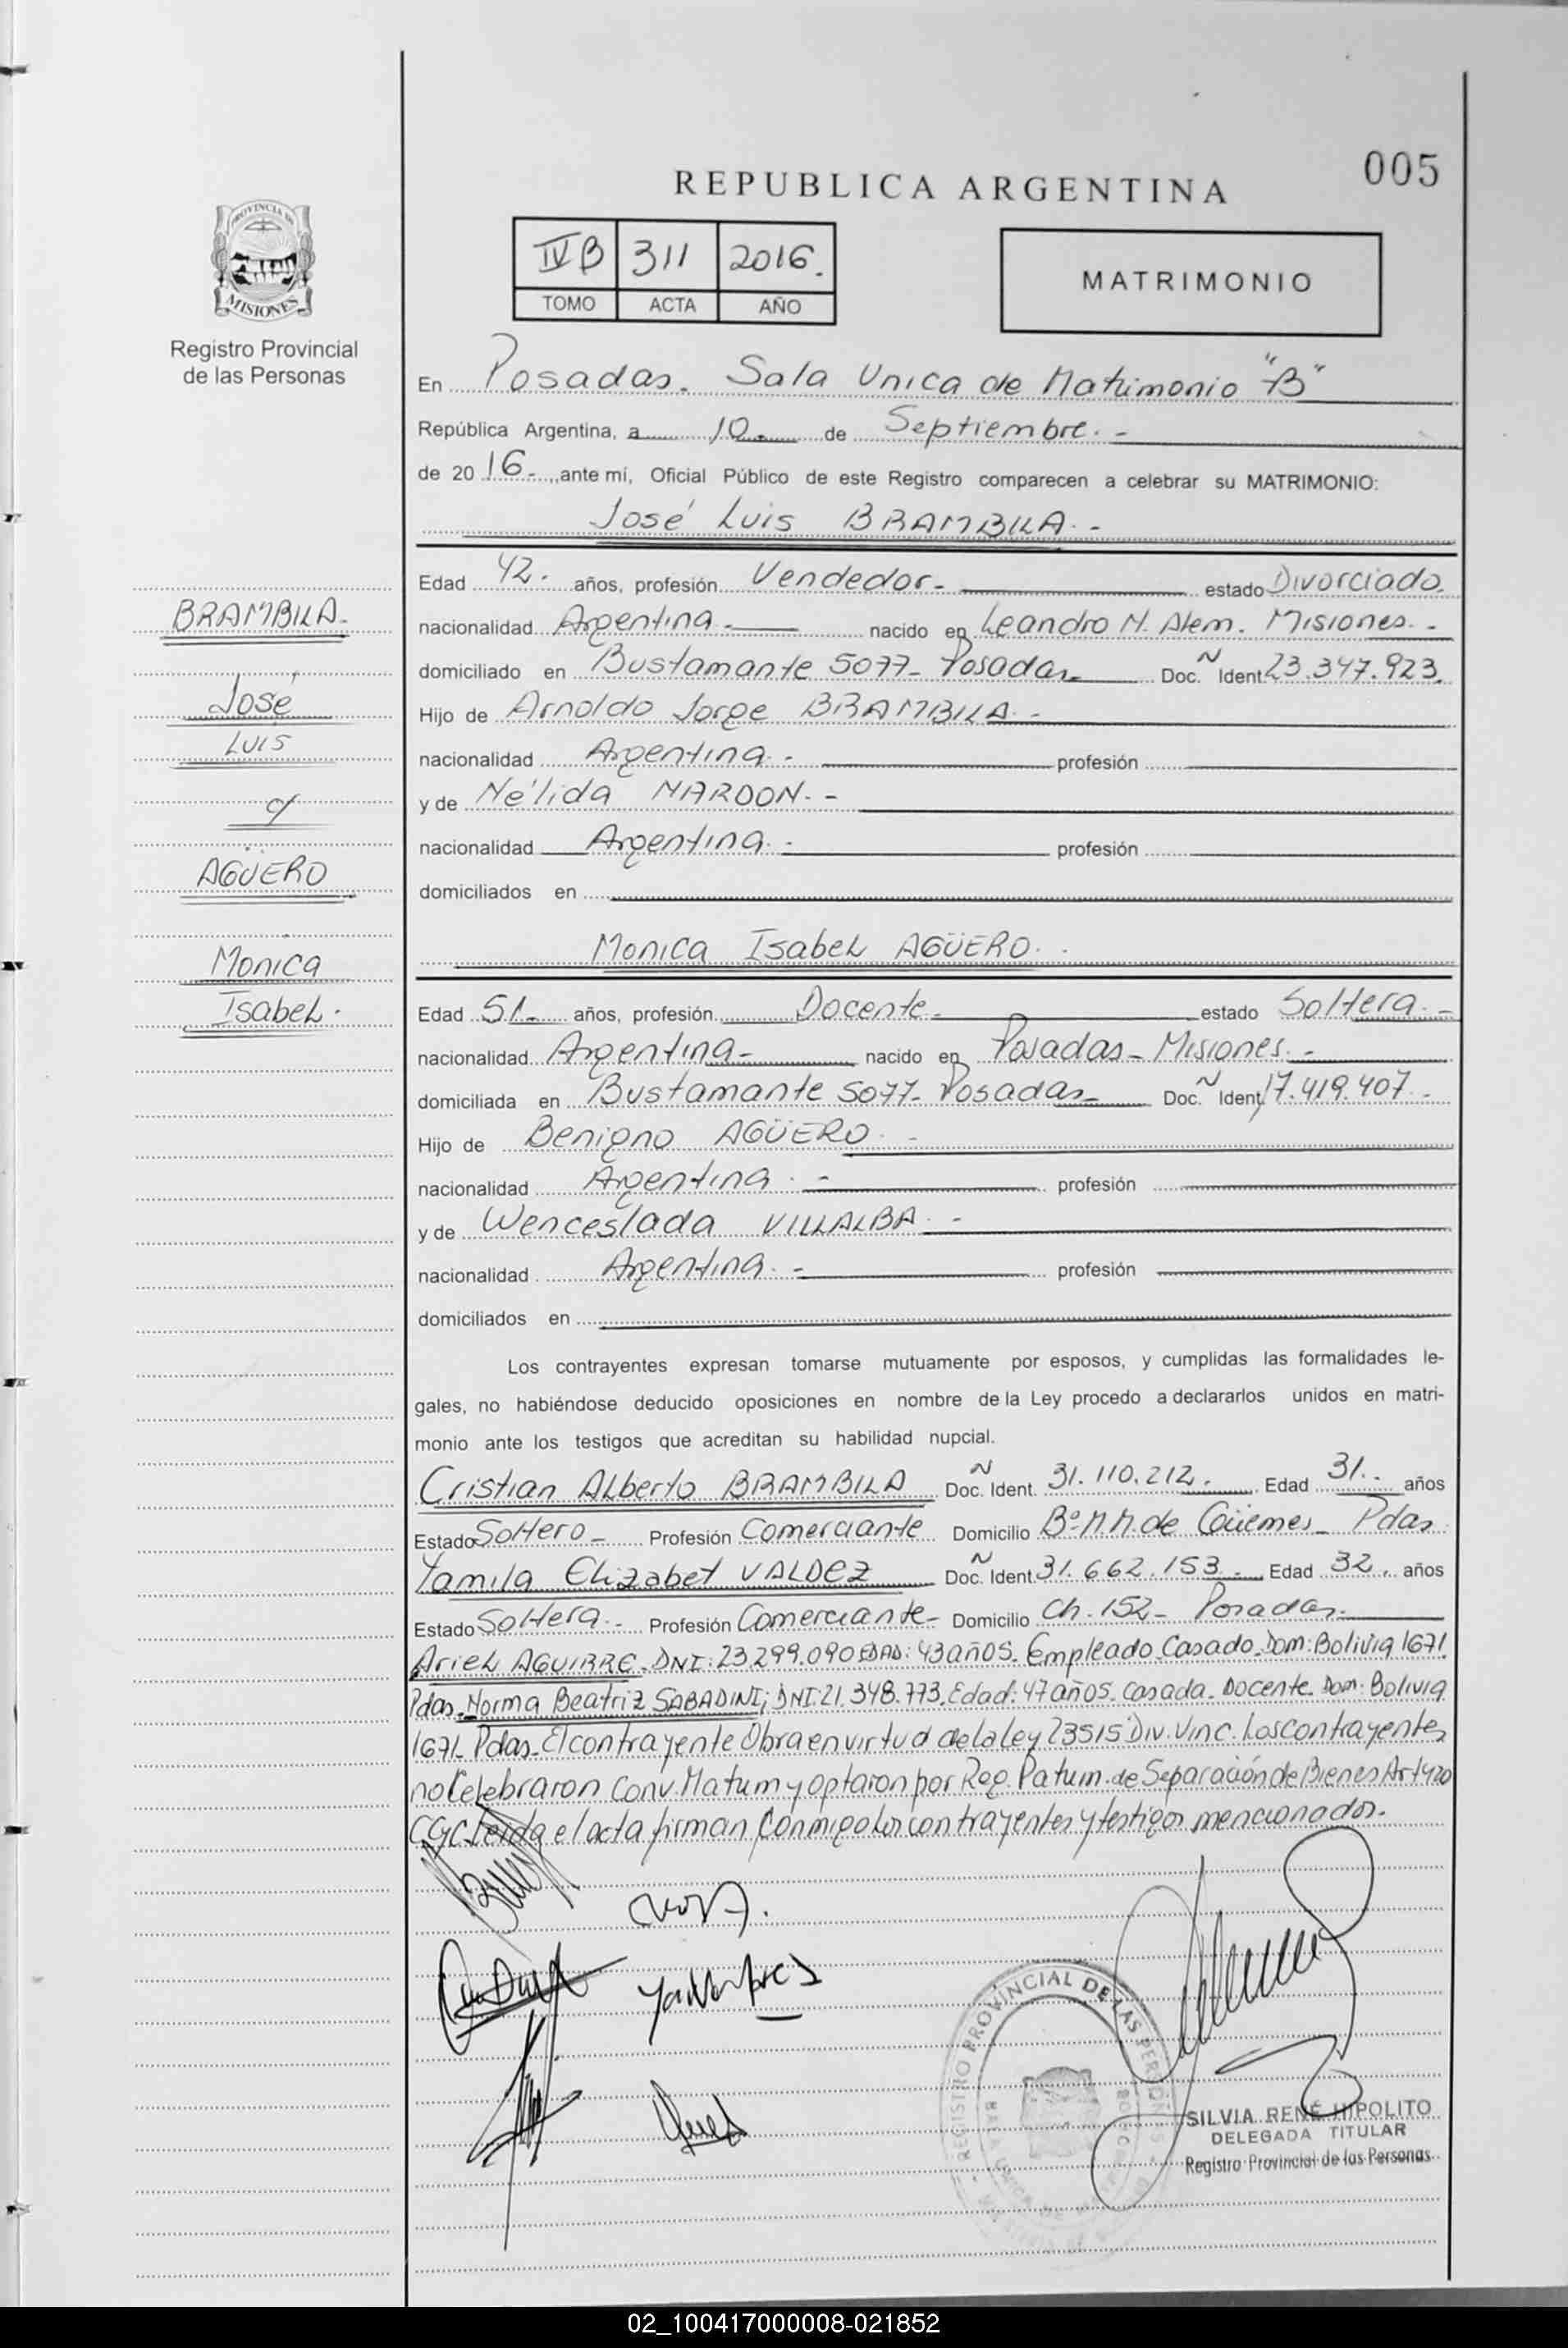 005
REPUBLICA ARGENTINA
PROVINCIA DE
MISIONES
Registro Provincial
de las Personas
IVB 311 2016.
TOMO ACTA AÑO
MATRIMONIO
En Posadas. Sala Unica de Matrimonio "B"
República Argentina, a 10.- de Septiembre. -
de 20 16.- ante mí, Oficial Público de este Registro comparecen a celebrar su MATRIMONIO:
José Luis BRAMBILA. -
Edad 42. años, profesión Vendedor. - estado Divorciado.
nacionalidad Argentina - nacido en Leandro N. Alem. Misiones. -
domiciliado en Bustamante 5077- Posadas Doc. Ñ Ident 23.347.923.
Hijo de Arnoldo Jorge BRAMBILA. -
nacionalidad Argentina. - profesión
y de Nélida MARDON. -
nacionalidad Argentina. - profesión
domiciliados en
BRAMBILA.
José
Luis
c/
AGÜERO
Monica
Isabel.
Monica Isabel AGÜERO. -
Edad 51. años, profesión Docente. - estado Soltera. -
nacionalidad Argentina - nacido en Posadas - Misiones. -
domiciliada en Bustamante 5077- Posadas Doc. Ñ Ident 17.419.407. -
Hijo de Benigno AGÜERO. -
nacionalidad Argentina. - profesión
y de Wenceslada VILLALBA. -
nacionalidad Argentina. - profesión
domiciliados en
Los contrayentes expresan tomarse mutuamente por esposos, y cumplidas las formalidades le-
gales, no habiéndose deducido oposiciones en nombre de la Ley procedo a declararlos unidos en matri-
monio ante los testigos que acreditan su habilidad nupcial.
Cristian Alberto BRAMBILA Doc. Ñ Ident. 31.110.212. Edad 31. años
Estado Soltero - Profesión Comerciante Domicilio Bº M M de Güemes - Pdas
Yamila Elizabet VALDEZ Doc. Ñ Ident. 31.662.153. Edad 32. años
Estado Soltera. - Profesión Comerciante - Domicilio Ch. 152 - Posadas.
Ariel AGUIRRE. DNI: 23.299.090 EDAD: 43 años. Empleado. Casado. Dom: Bolivia 1671.
Pdas. Norma Beatriz SABADINI; DNI: 21.348.773. Edad: 47 años. casada. Docente. Dom: Bolivia
1671- Pdas. El contrayente Obra en virtud de la Ley 23515 Div. Vinc. Los contrayentes
no Celebraron Conv. Matrim y optaron por Reg. Patrim. de Separación de Bienes Art 420
CGC Leida el acta firman Conmigo los contrayentes y testigos mencionados.
REGISTRO PROVINCIAL DE LAS PERSONAS
SILVIA RENÉ HIPOLITO
DELEGADA TITULAR
Registro Provincial de las Personas
02_100417000008-021852